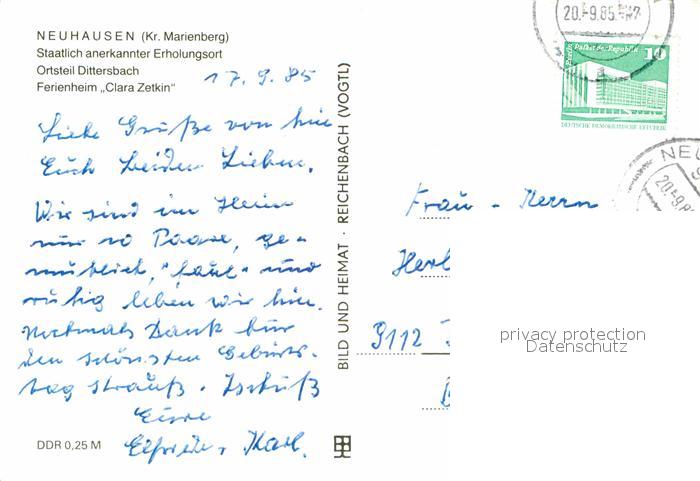 NEUHAUSEN (Kr. Marienberg)
Staatlich anerkannter Erholungsort
Ortsteil Dittersbach
Ferienheim „Clara Zetkin"
17.9.85
Liebe Grüße von hier
Euch beiden Lieben.
Wir sind im Heim
nur 10 Paare, ge-
mütlich, "faul" und
ruhig leben wir hier.
Nochmals Dank für
den schönsten Geburts-
tag strauß. Tschüß
Eure
Elfriede, Karl.
DDR 0,25 M
BILD UND HEIMAT · REICHENBACH (VOGTL)
20.-9.85
Berlin, Palast der Republik
10
DEUTSCHE DEMOKRATISCHE REPUBLIK
NEU
20.-9.85
Frau - Herrn
Herb
9112
privacy protection
Datenschutz